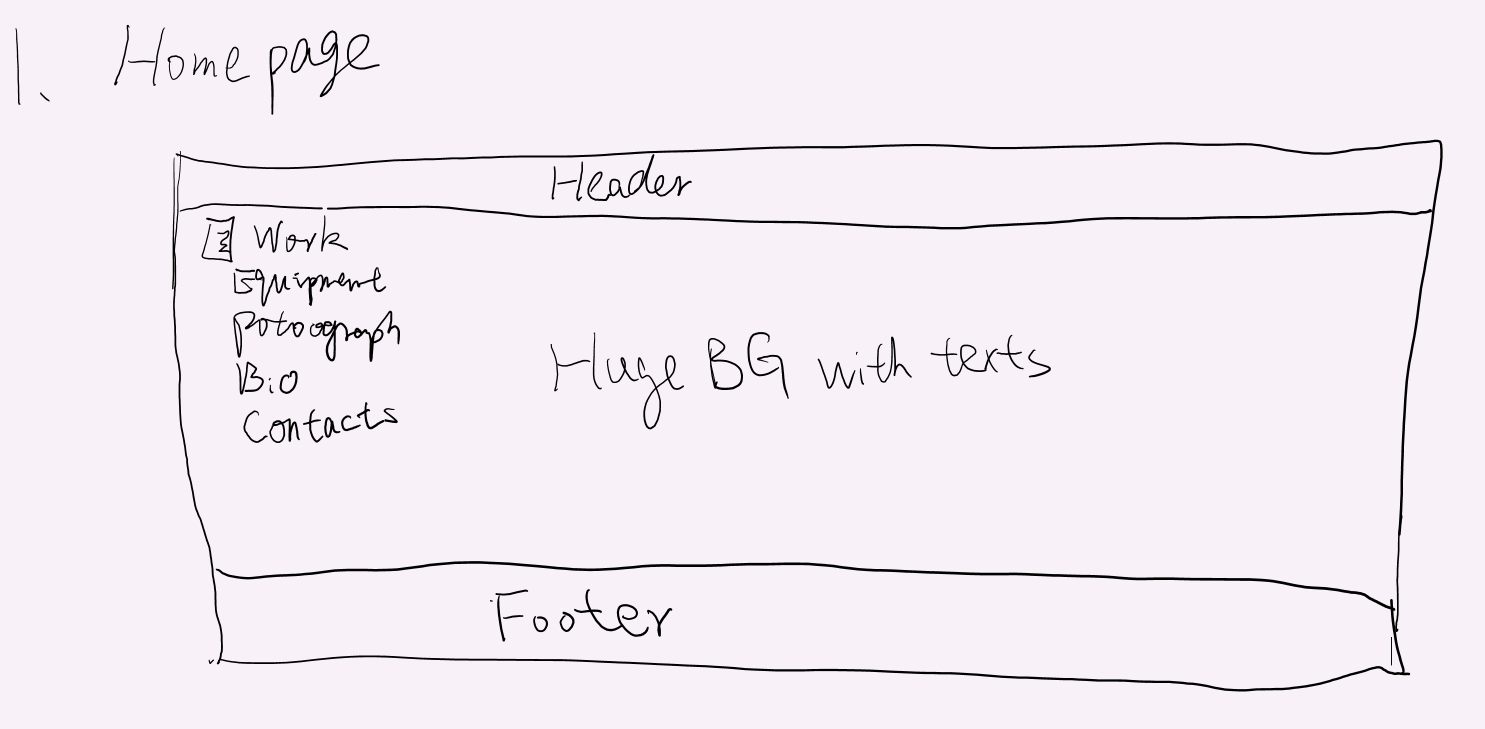 1. Home page
Header
Work
Equipment
Potoograph
Bio
Contacts
Huge BG with texts
Footer